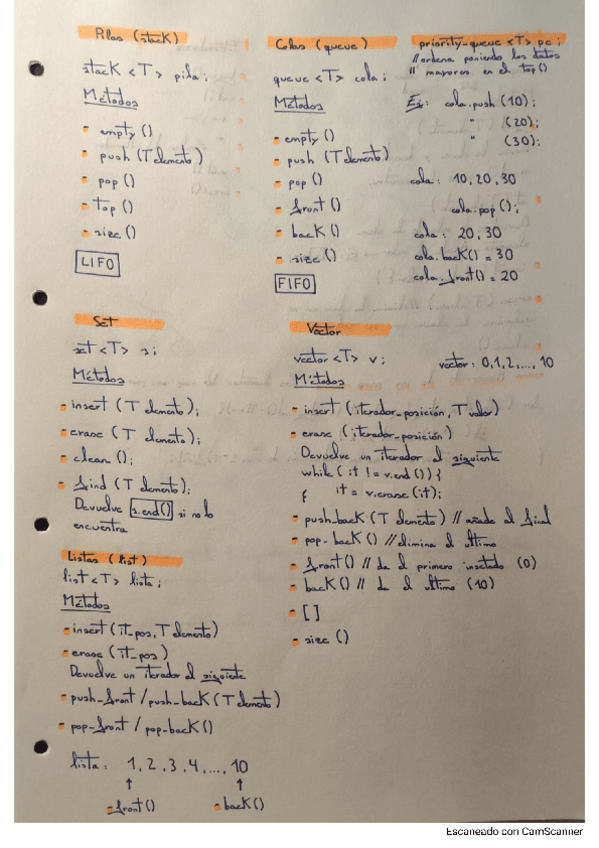 Pilas (stack)
stack <T> pila;
Métodos
- empty ()
- push (T elemento)
- pop ()
- top ()
- size ()
LIFO
Colas (queue)
queue <T> cola;
Métodos
- empty ()
- push (T elemento)
- pop ()
- front ()
- back ()
- size ()
FIFO
priority-queue <T> pc;
// ordena poniendo los datos
// mayores en el top()
Ej: cola.push (10);
" (20);
" (30);
cola: 10, 20, 30
cola.pop();
cola: 20, 30
cola.back() = 30
cola.front() = 20
Set
set <T> s;
Métodos
- insert (T elemento);
- erase (T elemento);
- clear ();
- find (T elemento);
Devuelve s.end() si no lo
encuentra
Vector
vector <T> v;
vector: 0,1,2,..., 10
Métodos
- insert (iterador_posición, T valor)
- erase (iterador_posición)
Devuelve un iterador al siguiente
while (it != v.end ()) {
it = v.erase (it);
}
- push_back (T elemento) // añade al final
- pop_back () // elimina el último
- front () // da el primero insertado (0)
- back () // da el último (10)
- []
- size ()
Listas (list)
list <T> lista;
Métodos
- insert (it_pos, T elemento)
- erase (it_pos)
Devuelve un iterador al siguiente
- push_front / push_back (T elemento)
- pop_front / pop_back ()
lista: 1, 2, 3, 4, ..., 10
↑ ↑
- front () - back ()
Escaneado con CamScanner